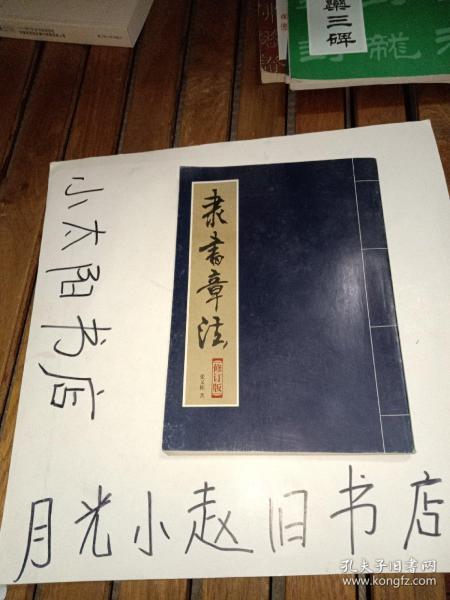 三碑
隶书章法
【修订版】
小太阳书店
月光小赵旧书店
孔夫子旧书网
www.kongfz.com